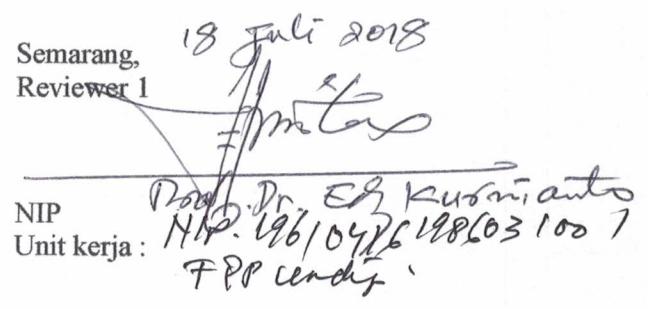 Semarang, 18 Juli 2018
Reviewer 1
Prof. Dr. Edy Kurnianto
NIP NIP. 196104261986031001
Unit kerja : FPP Undip